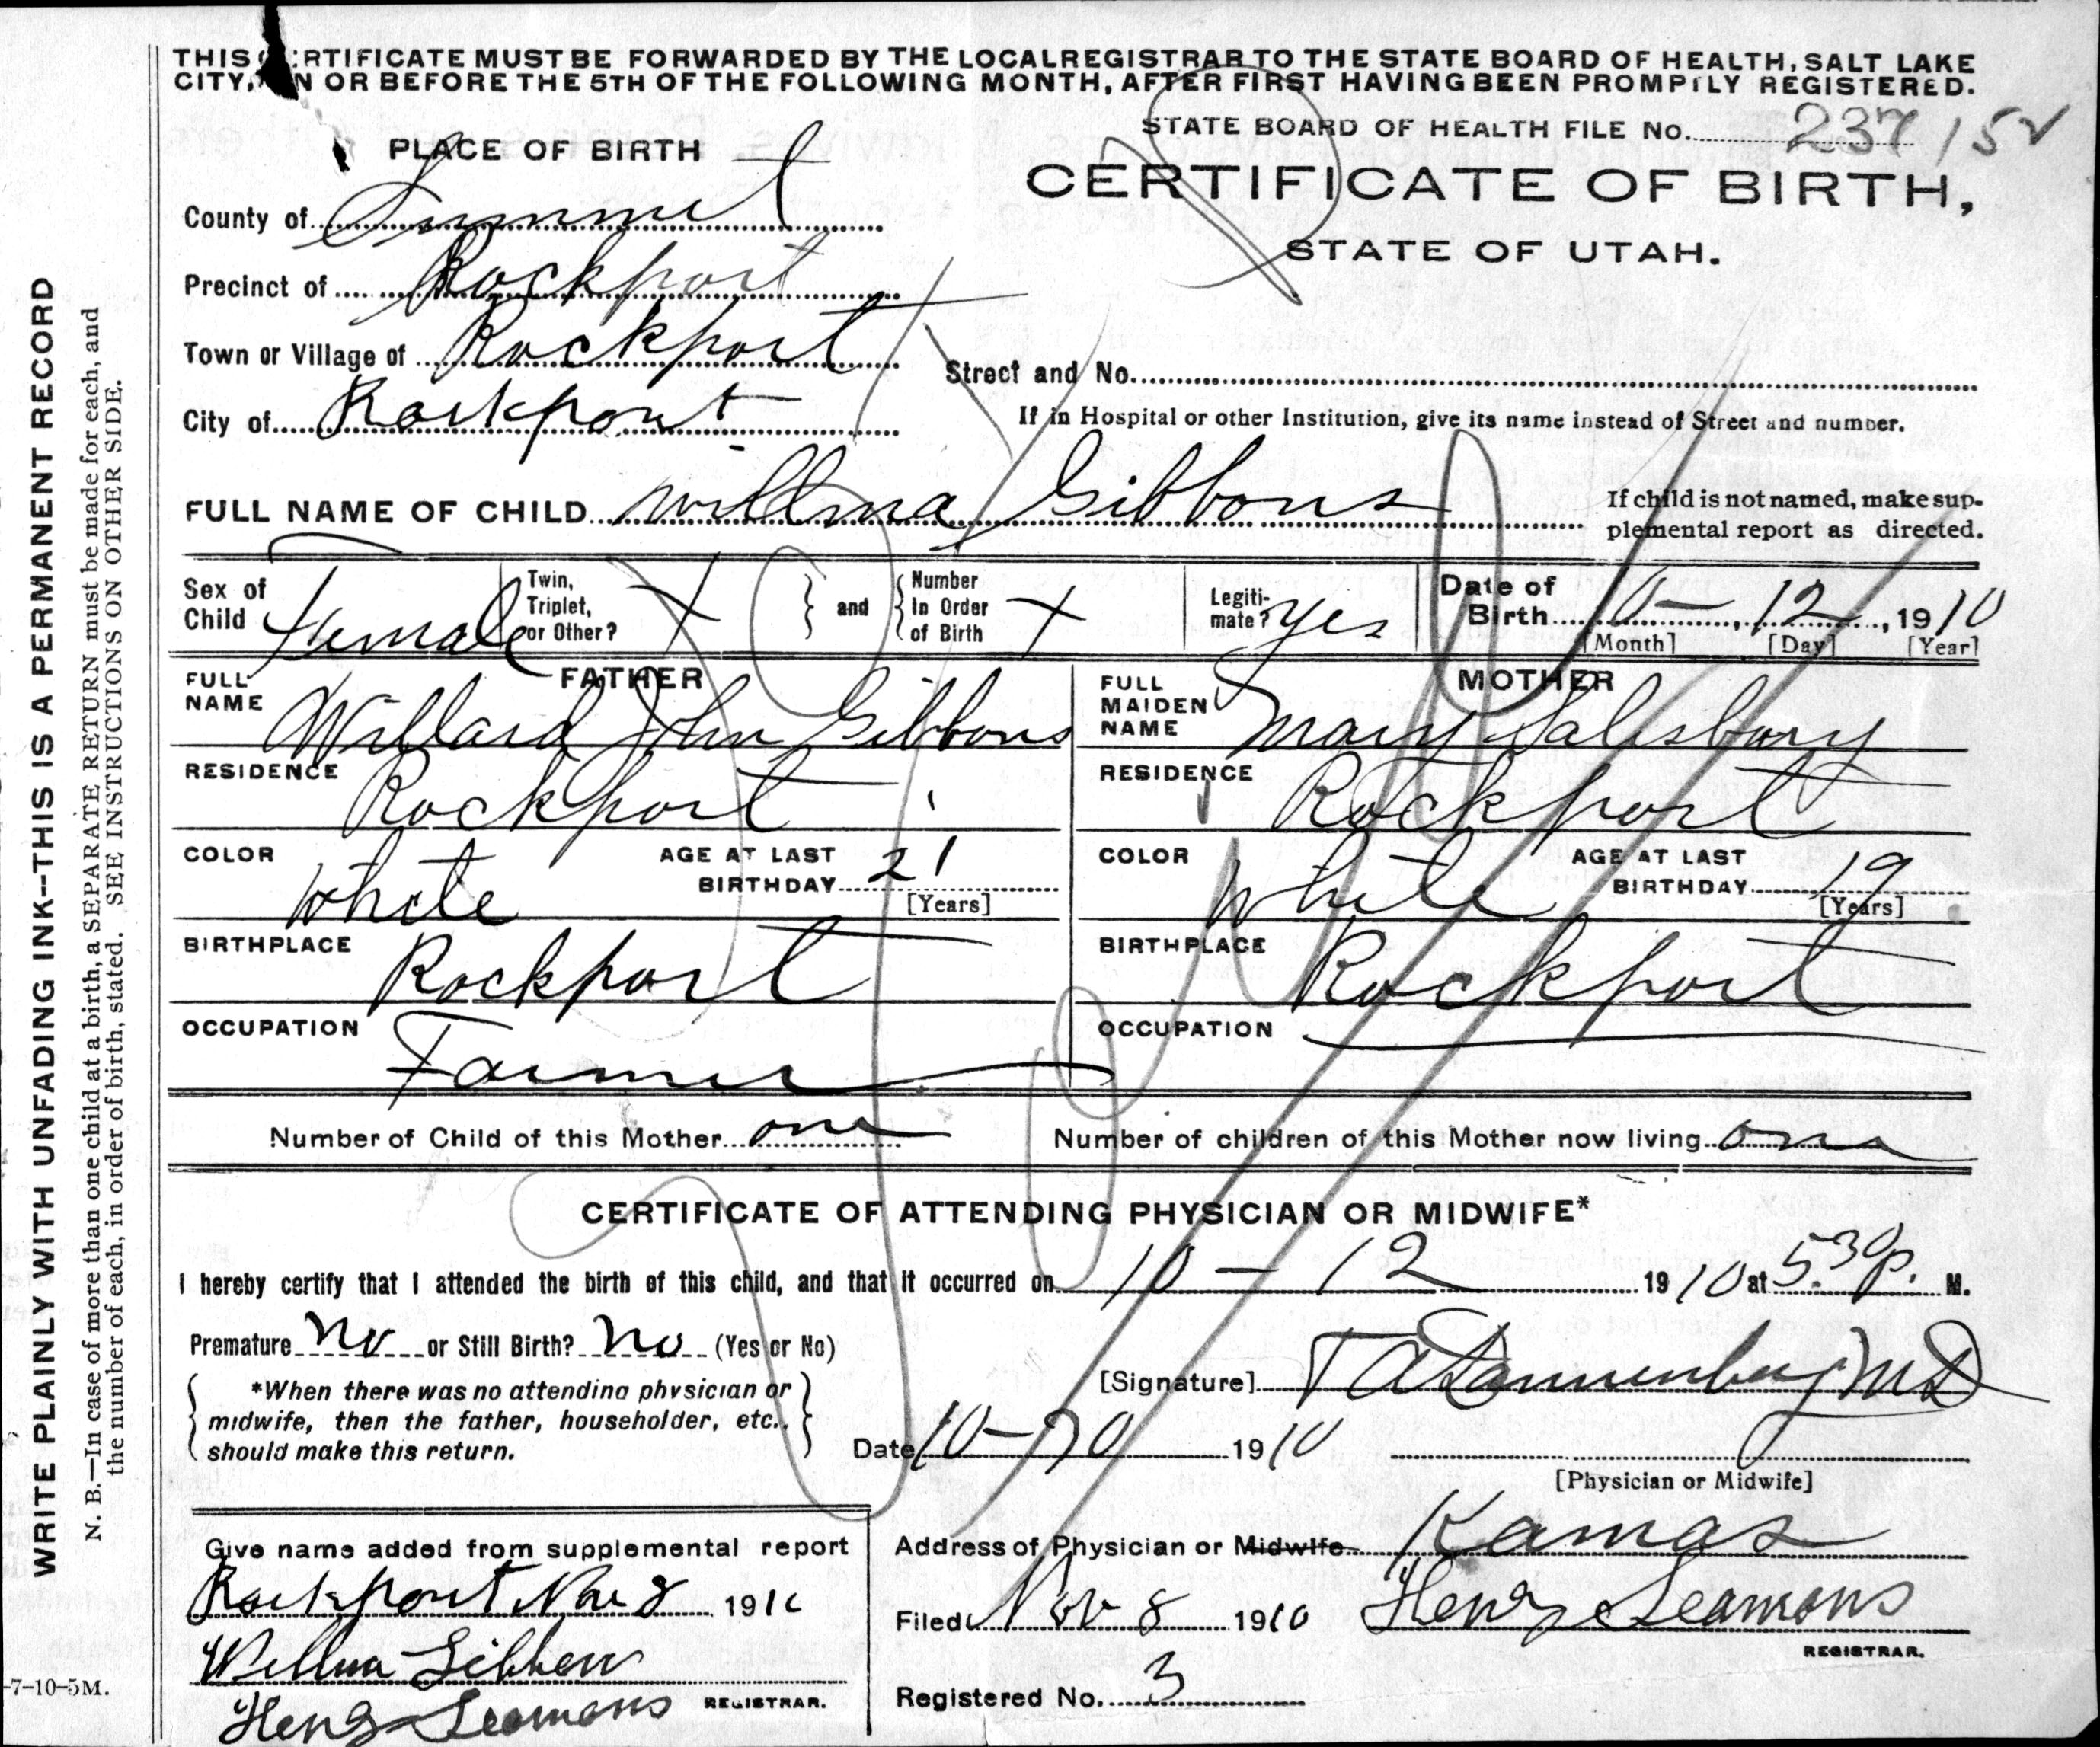 THIS CERTIFICATE MUST BE FORWARDED BY THE LOCAL REGISTRAR TO THE STATE BOARD OF HEALTH, SALT LAKE
CITY, ON OR BEFORE THE 5TH OF THE FOLLOWING MONTH, AFTER FIRST HAVING BEEN PROMPTLY REGISTERED.
STATE BOARD OF HEALTH FILE No. 237 / 52
PLACE OF BIRTH
CERTIFICATE OF BIRTH,
STATE OF UTAH.
County of Summit
Precinct of Rockport
Town or Village of Rockport
Street and No.
City of Rockport
If in Hospital or other Institution, give its name instead of Street and number.
FULL NAME OF CHILD Willma Gibbons
If child is not named, make sup-
plemental report as directed.
Sex of Child Female
Twin, Triplet, or Other? X
and
Number In Order of Birth X
Legiti-mate? yes
Date of Birth 10 - , 12 , 1910
[Month] [Day] [Year]
FATHER
FULL NAME Willard John Gibbons
MOTHER
FULL MAIDEN NAME Mary Salisbury
RESIDENCE Rockport
RESIDENCE Rockport
COLOR White
AGE AT LAST BIRTHDAY 21
[Years]
COLOR White
AGE AT LAST BIRTHDAY 19
[Years]
BIRTHPLACE Rockport
BIRTHPLACE Rockport
OCCUPATION Farmer
OCCUPATION
Number of Child of this Mother one
Number of children of this Mother now living one
CERTIFICATE OF ATTENDING PHYSICIAN OR MIDWIFE*
I hereby certify that I attended the birth of this child, and that it occurred on 10 - 12 1910 at 5.30 p. M.
Premature No or Still Birth? No (Yes or No)
*When there was no attending physician or
midwife, then the father, householder, etc.,
should make this return.
[Signature] T A Dannenberg MD
Date 10-20 1910
[Physician or Midwife]
Give name added from supplemental report
Rockport Nov 8 1910
Willma Gibben
Henry Seamons REGISTRAR.
Address of Physician or Midwife Kamas
Filed Nov 8 1910 Henry Seamons
REGISTRAR.
Registered No. 3
WRITE PLAINLY WITH UNFADING INK--THIS IS A PERMANENT RECORD
N. B.—In case of more than one child at a birth, a SEPARATE RETURN must be made for each, and
the number of each, in order of birth, stated. SEE INSTRUCTIONS ON OTHER SIDE.
-7-10-5M.